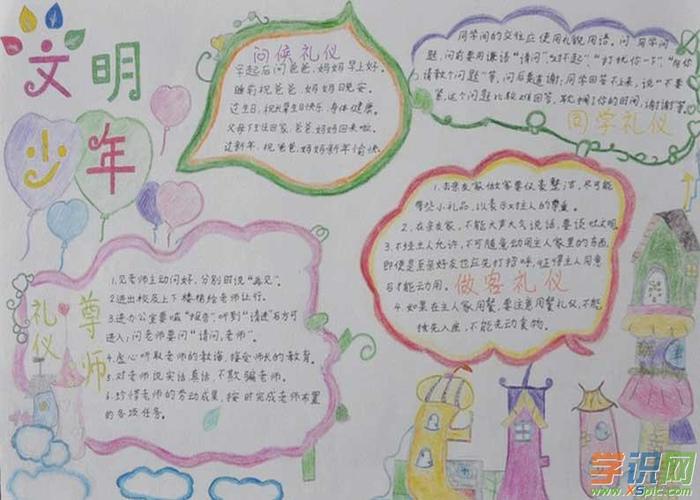 文明
少年
问候礼仪
早起后问爸爸、妈妈早上好。
睡前祝爸爸、妈妈晚安。
过生日,祝长辈生日快乐,身体健康。
父母下班回家,爸爸、妈妈回来啦。
过新年,祝爸爸、妈妈新年愉快。
同学间的交往应使用礼貌用语。问同学问
题,问前要用谦语“请问”,“对不起”,“打扰你一下”,
请教个问题”等,问后要道谢;同学回答不上来,说“不要
紧,这个问题比较难回答,耽搁了你的时间,谢谢”等。
同学礼仪
1.去亲友家做客要仪表整洁,尽可能
带些小礼品,以表示对主人的尊重。
2.在亲友家,不能大声大气说话,要谈吐文明。
3.不经主人允许,不可随意动用主人家里的东西,
即使是至亲好友也应先打招呼,征得主人同意
后才能动用。
做客礼仪
4.如果在主人家用餐,要注意用餐礼仪,不能
抢先入座,不能先动食物。
尊师
礼仪
1.见老师主动问好,分别时说“再见”。
2.进出校及上下楼梯给老师让行。
3.进办公室要喊“报告”,听到“请进”后方可
进入;问老师要问“请问,老师”。
4.虚心听取老师的教诲,接受师长的教育。
5.对老师说实话真话,不欺骗老师。
6.珍惜老师的劳动成果,按时完成老师布置
的各项任务。
学识网
www.XSpic.com